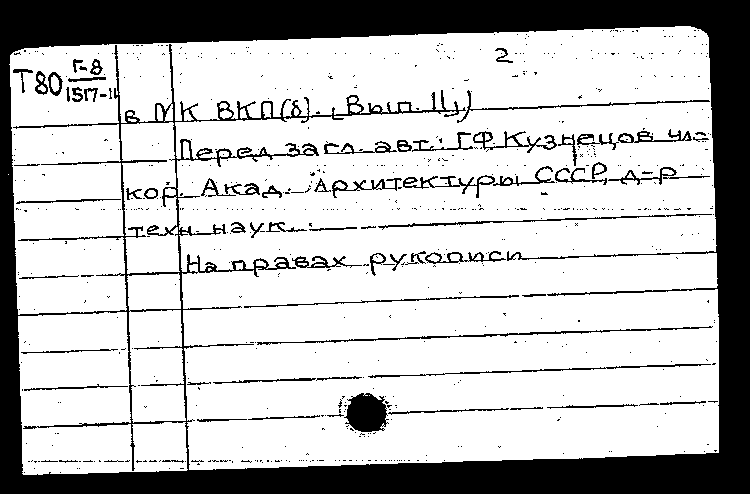 2
Т80 Г-8
1517-11
в МК ВКП(б). [Вып. 11])
Перед загл. авт.: Г.Ф. Кузнецов чл.-
кор. Акад. Архитектуры СССР, д-р
техн. наук.
На правах рукописи